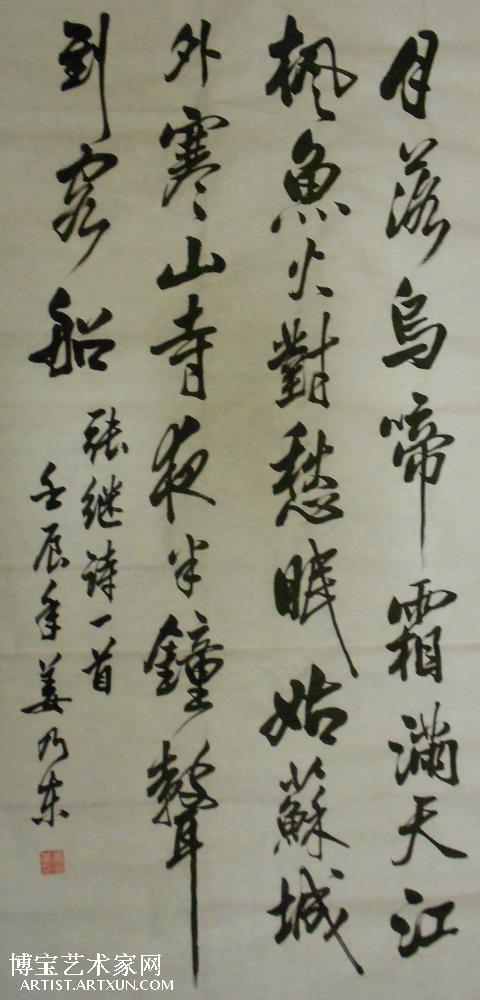 月落烏啼霜滿天江
枫魚火對愁眠姑蘇城
外寒山寺夜半鐘聲
到客船
张继诗一首
壬辰年姜乃东
博宝艺术家网
ARTIST.ARTXUN.COM